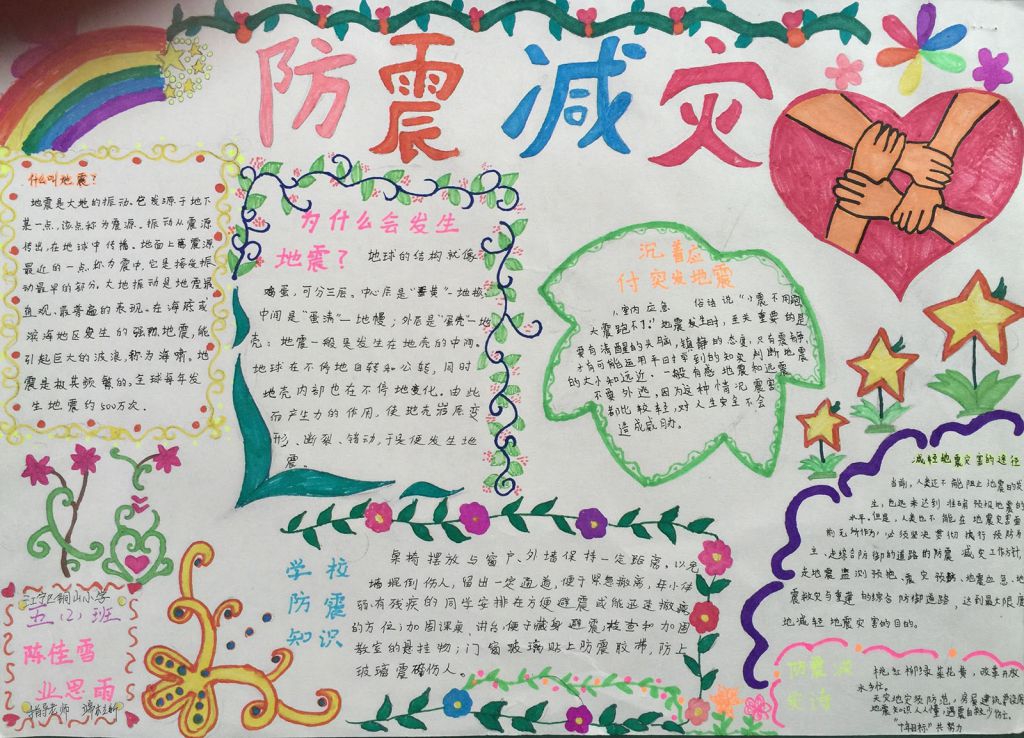 防震减灾
什么叫地震?
地震是大地的振动。它发源于地下
某一点,该点称为震源。振动从震源
传出,在地球中传播。地面上离震源
最近的一点称为震中,它是接受振
动最早的部分。大地振动是地震最
直观、最普遍的表现。在海底或
滨海地区发生的强烈地震,能
引起巨大的波浪,称为海啸。地
震是极其频繁的,全球每年发
生地震约500万次.
为什么会发生
地震?
地球的结构就像
鸡蛋,可分三层。中心层是“蛋黄”—地核;
中间是“蛋清”—地幔;外层是“蛋壳”—地
壳;地震一般是发生在地壳的中间。
地球在不停地自转和公转,同时
地壳内部也在不停地变化。由此
而产生力的作用,使地壳岩层变
形、断裂、错动,于是便发生地
震。
沉着应
付突发地震
1、室内应急
俗话说“小震不用跑
大震跑不了”地震发生时,至关重要的是
要有清醒的头脑,镇静的态度,只有镇静,
才有可能运用平日学到的知识判断地震
的大小和远近。一般有感地震和远震
不要外逃,因为这种情况震害
都比较轻,对人生安全不会
造成威胁。
减轻地震灾害的途径
当前,人类还不能阻止地震的发
生,也远未达到准确预报地震的
水平。但是,人类也不能在地震灾害面
前无所作为,必须坚决贯彻执行预防为
主,走综合防御的道路的防震减灾工作方针,
走地震监测预报、震灾预防、地震应急、地
震救灾与重建的综合防御道路,达到最大限度
地减轻地震灾害的目的。
学校
防震
知识
桌椅摆放与窗户、外墙保持一定距离,以免
墙塌倒伤人,留出一定通道,便于紧急撤离,年小体
弱,有残疾的同学安排在方便避震或能迅速撤离
的方位;加固课桌、讲台,便于藏身避震;检查和加固
教室的悬挂物;门窗玻璃贴上防震胶带,防止
玻璃震碎伤人。
江宁区铜山小学
五(2)班
陈佳雪
业思雨
指导老师
防震减
灾诗
桃红柳绿菜花黄,改革开放
天灾地灾须防范,房屋建筑
地震知识人人懂,遇震自救少伤亡。
共努力